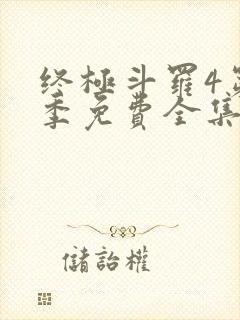 终極斗羅4第
季免費全集
儲詒權